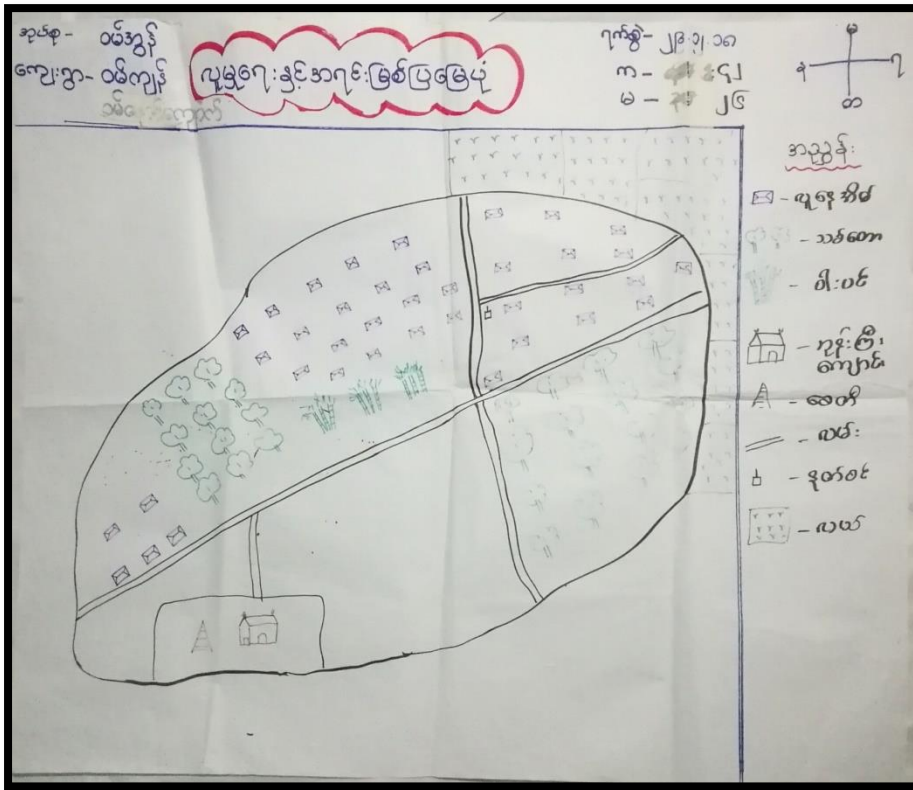 အုပ်စု - ဝမ်အွန်
ကျေးရွာ - ဝမ်ကျန်
လူမှုရေးနှင့်အရင်းမြစ်ပြမြေပုံ
ရက်စွဲ - ၂၃.၃၂.၁၈
က - ၄၂
မ - ၂၆
မ
န
ရ
တ
အညွှန်း
- လူနေအိမ်
- သစ်တော
- ဝါးပင်
- ဘုန်းကြီး
ကျောင်း
- စေတီ
- လမ်း
- နတ်စင်
- လယ်